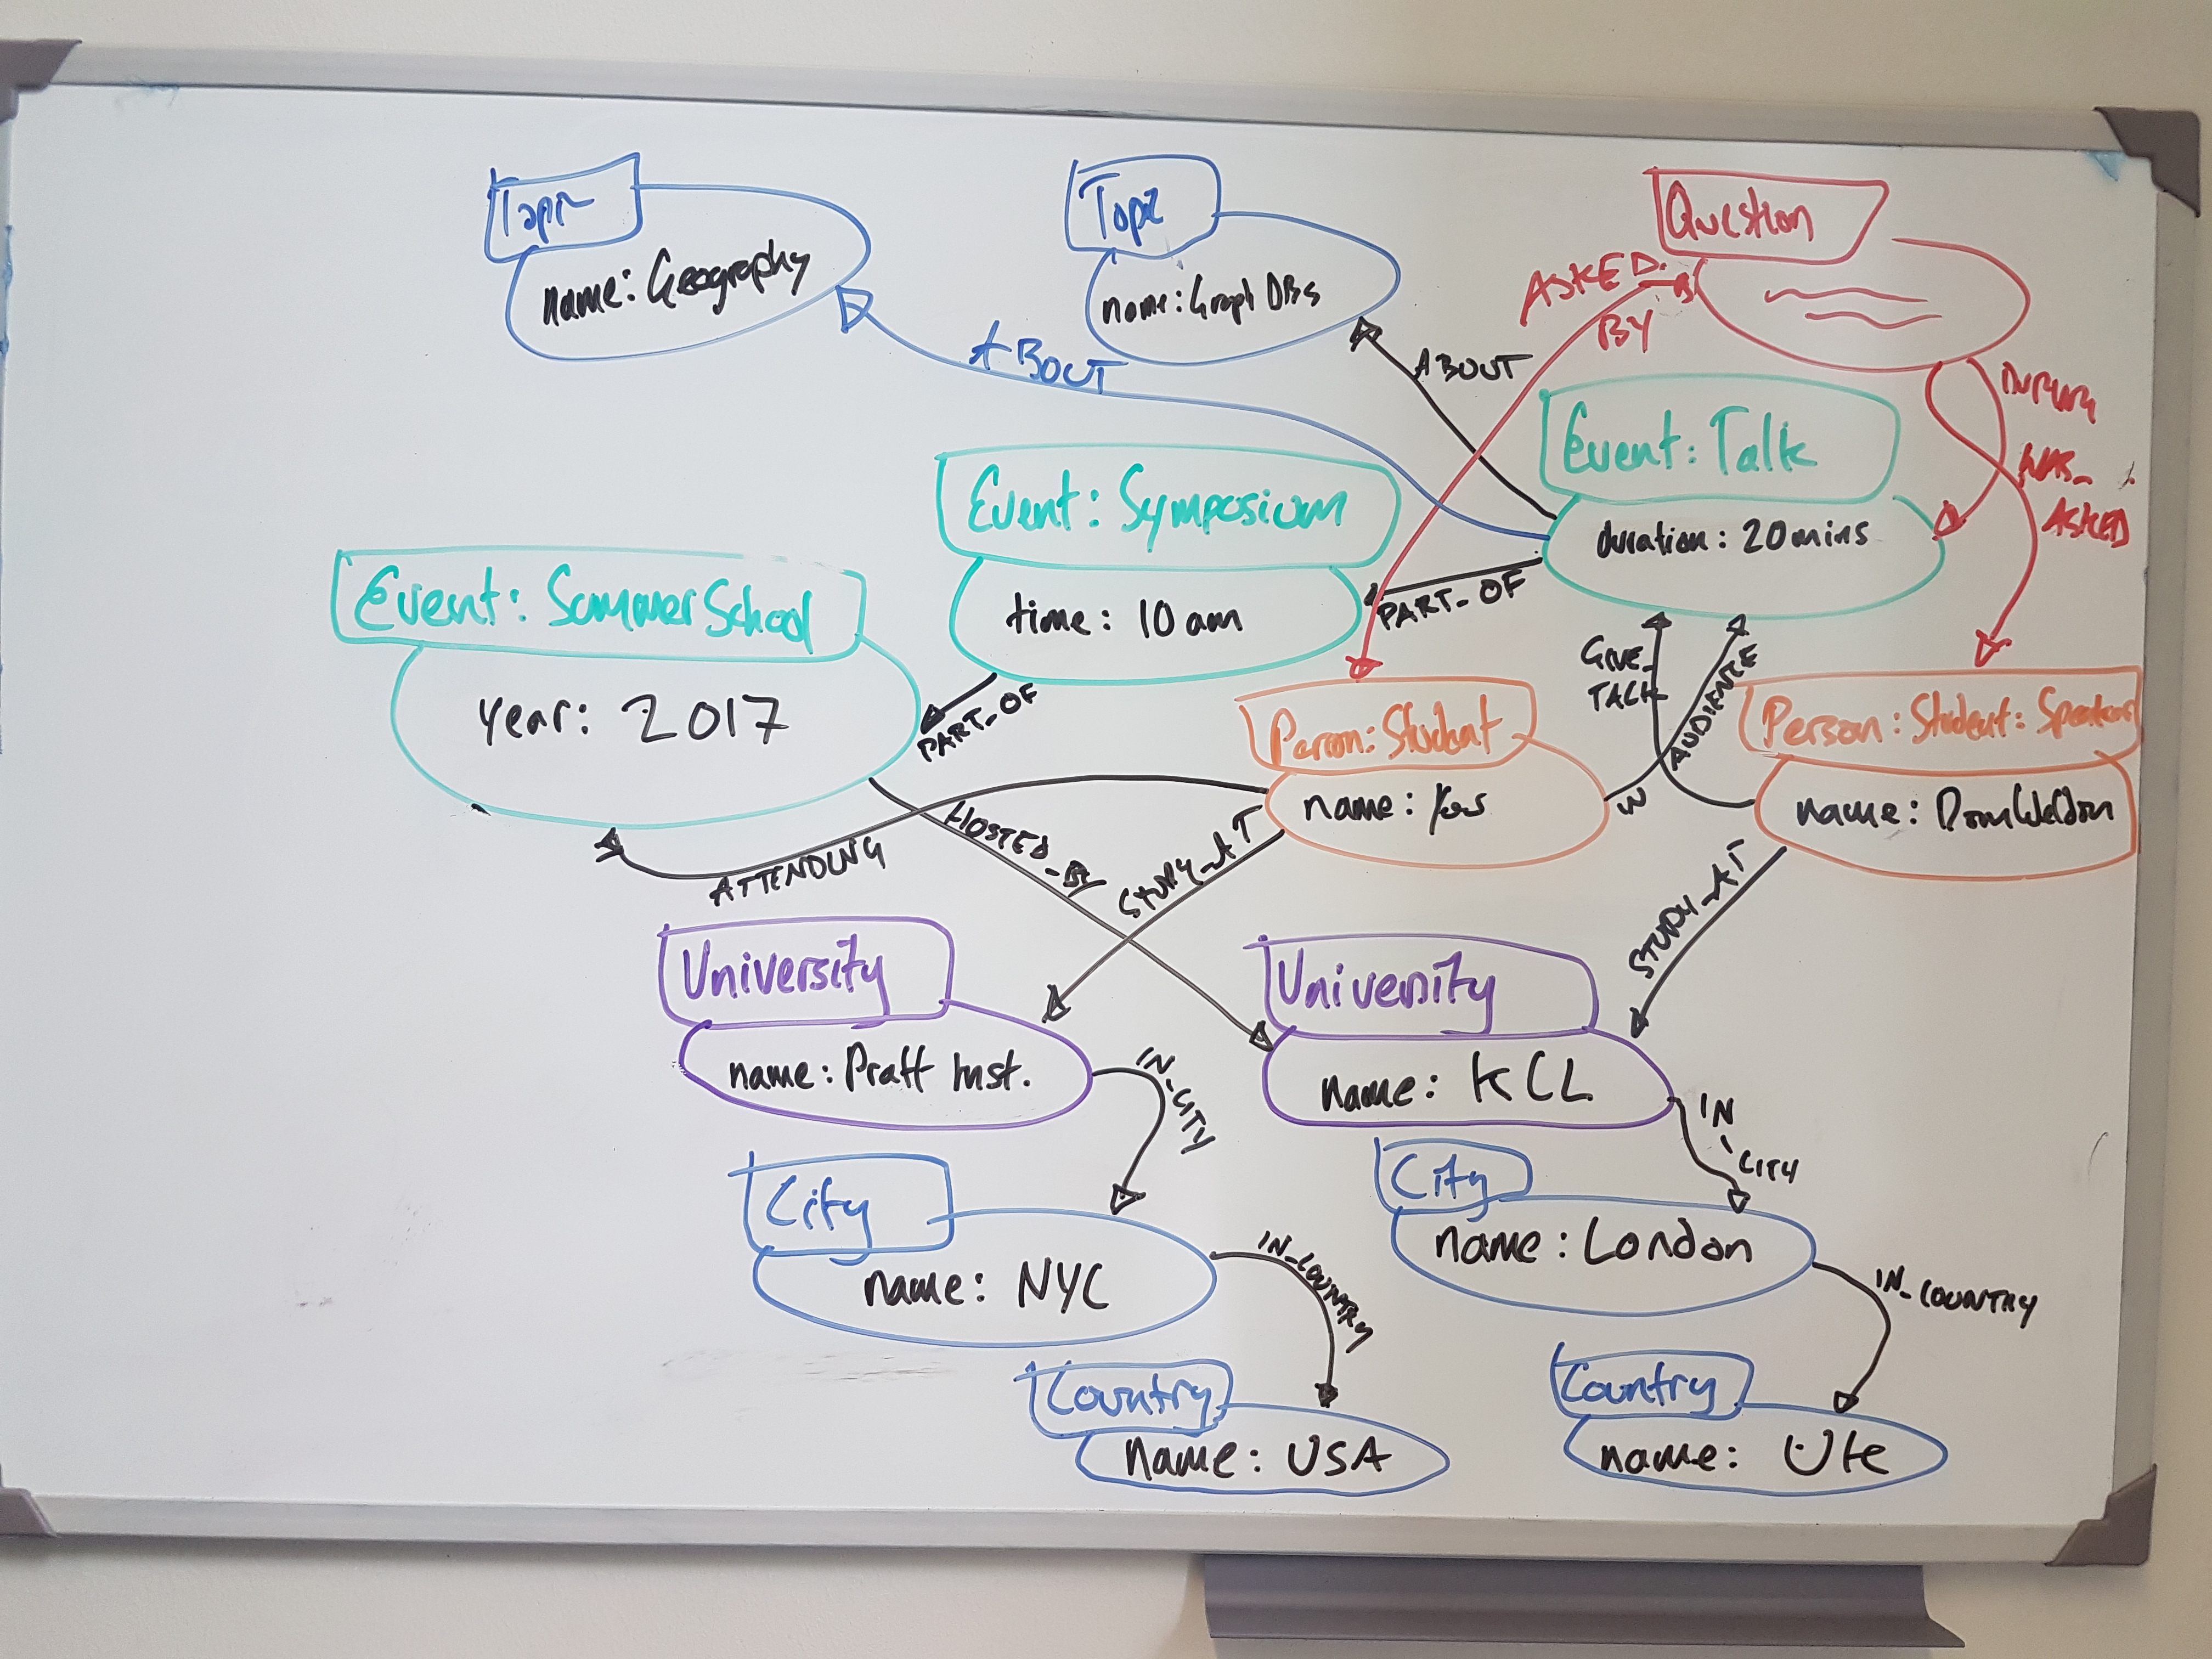 Topic
name: Geography
Topic
name: Graph DBs
Question
ASKED_
BY
ABOUT
ABOUT
DURING
WAS_
ASKED
Event: Talk
duration: 20mins
Event: Symposium
time: 10 am
PART_OF
Event: SummerSchool
year: 2017
PART_OF
GIVE_
TALK
AUDIENCE
Person: Student
name:
Person: Student: Speaker
name: Dom Weldon
ATTENDING
HOSTED_BY
STUDY_AT
STUDY_AT
University
name: Pratt Inst.
University
name: KCL
IN_CITY
IN
_
CITY
City
name: NYC
City
name: London
IN_COUNTRY
IN_COUNTRY
Country
name: USA
Country
name: UK